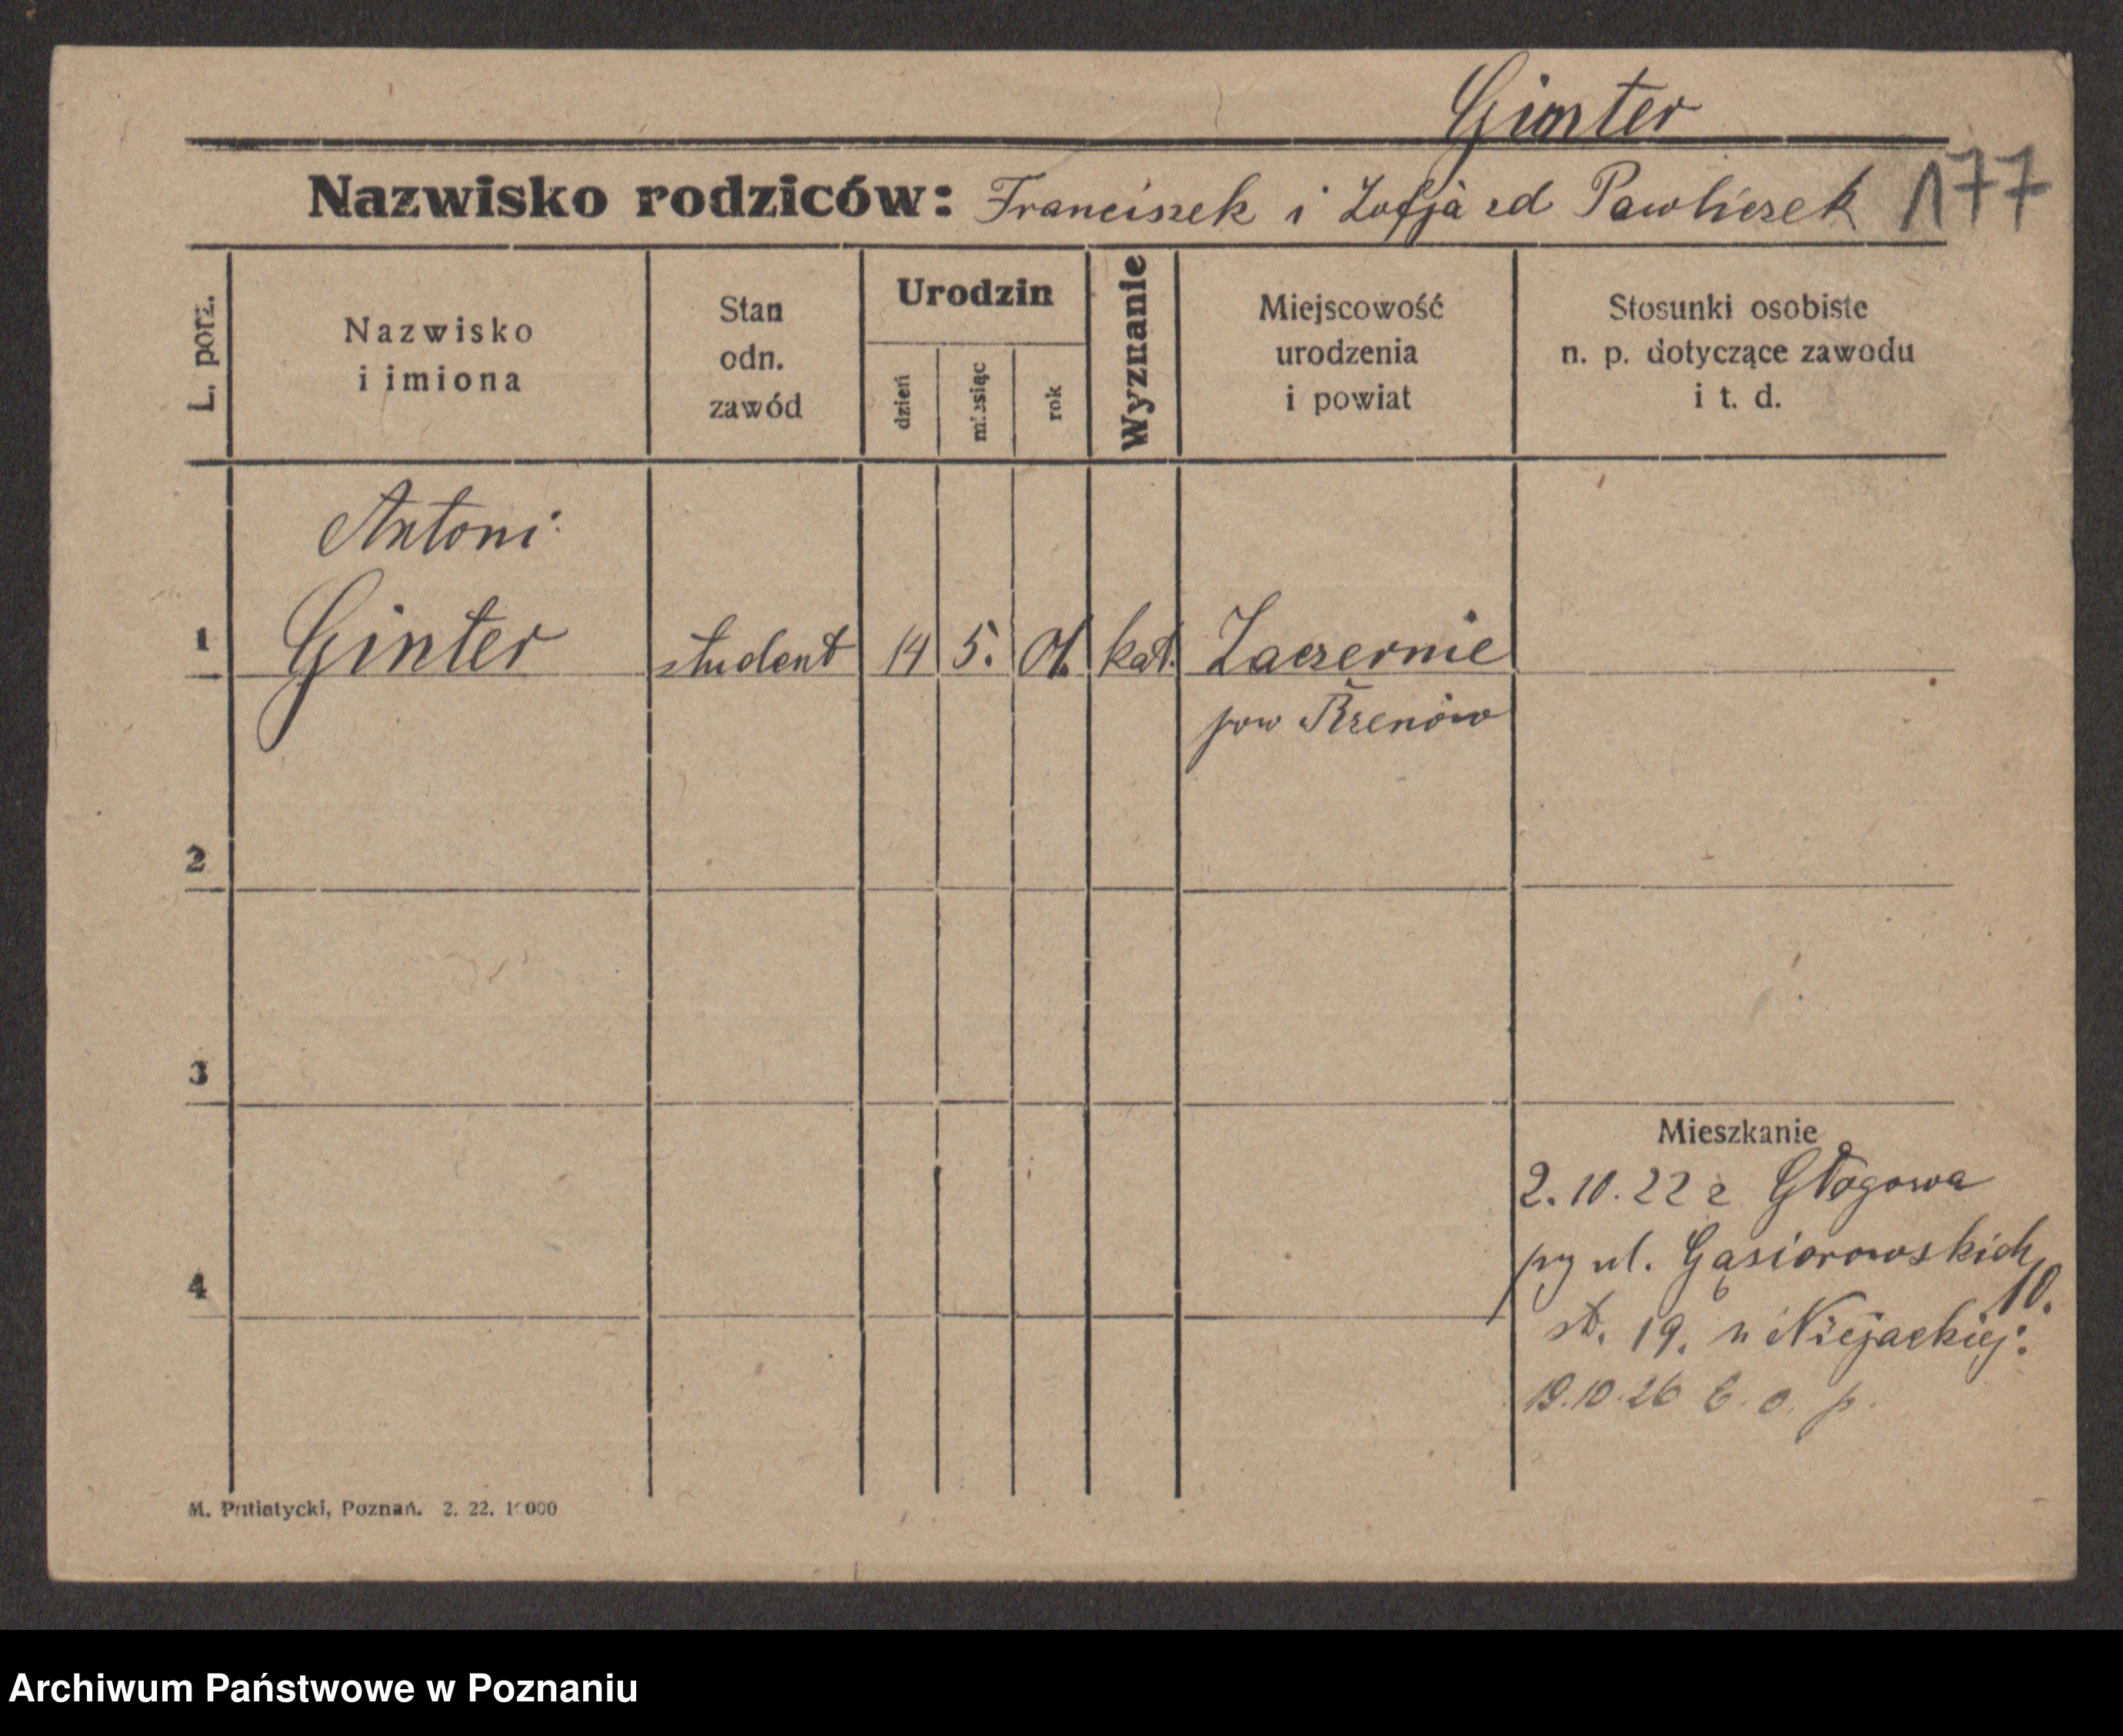 Ginter
Nazwisko rodziców: Franciszek i Zofja zd Pawliczek 177
L. porz.
Nazwisko
i imiona
Stan
odn.
zawód
Urodzin
dzień
miesiąc
rok
Wyznanie
Miejscowość
urodzenia
i powiat
Stosunki osobiste
n. p. dotyczące zawodu
i t. d.
Antoni
1 Ginter student 14 5. 01. kat. Zaczernie
pow Rzeszów
2
3
4
Mieszkanie
2.10.22 z Głogowa
py ul. Gąsiorowskich
10.
st. 19. u
19.10.26 b. o. p.
M. Putiatycki, Poznań. 2. 22. 10000
Archiwum Państwowe w Poznaniu